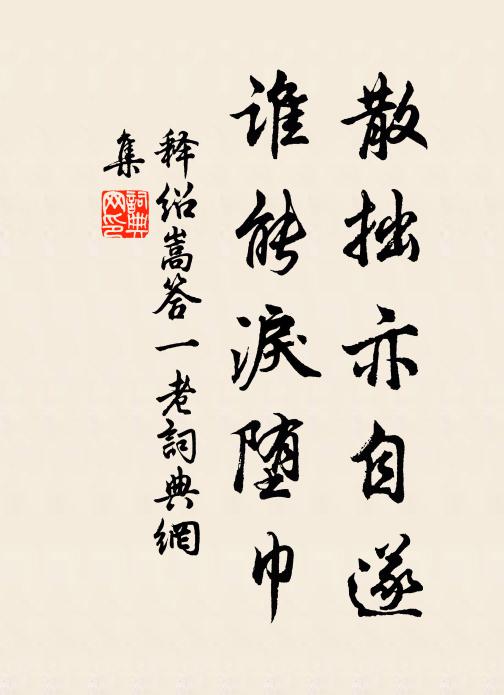 散拙亦自遂
谁能淚堕巾
释绍嵩答一老詞典網
集
詞典
网印